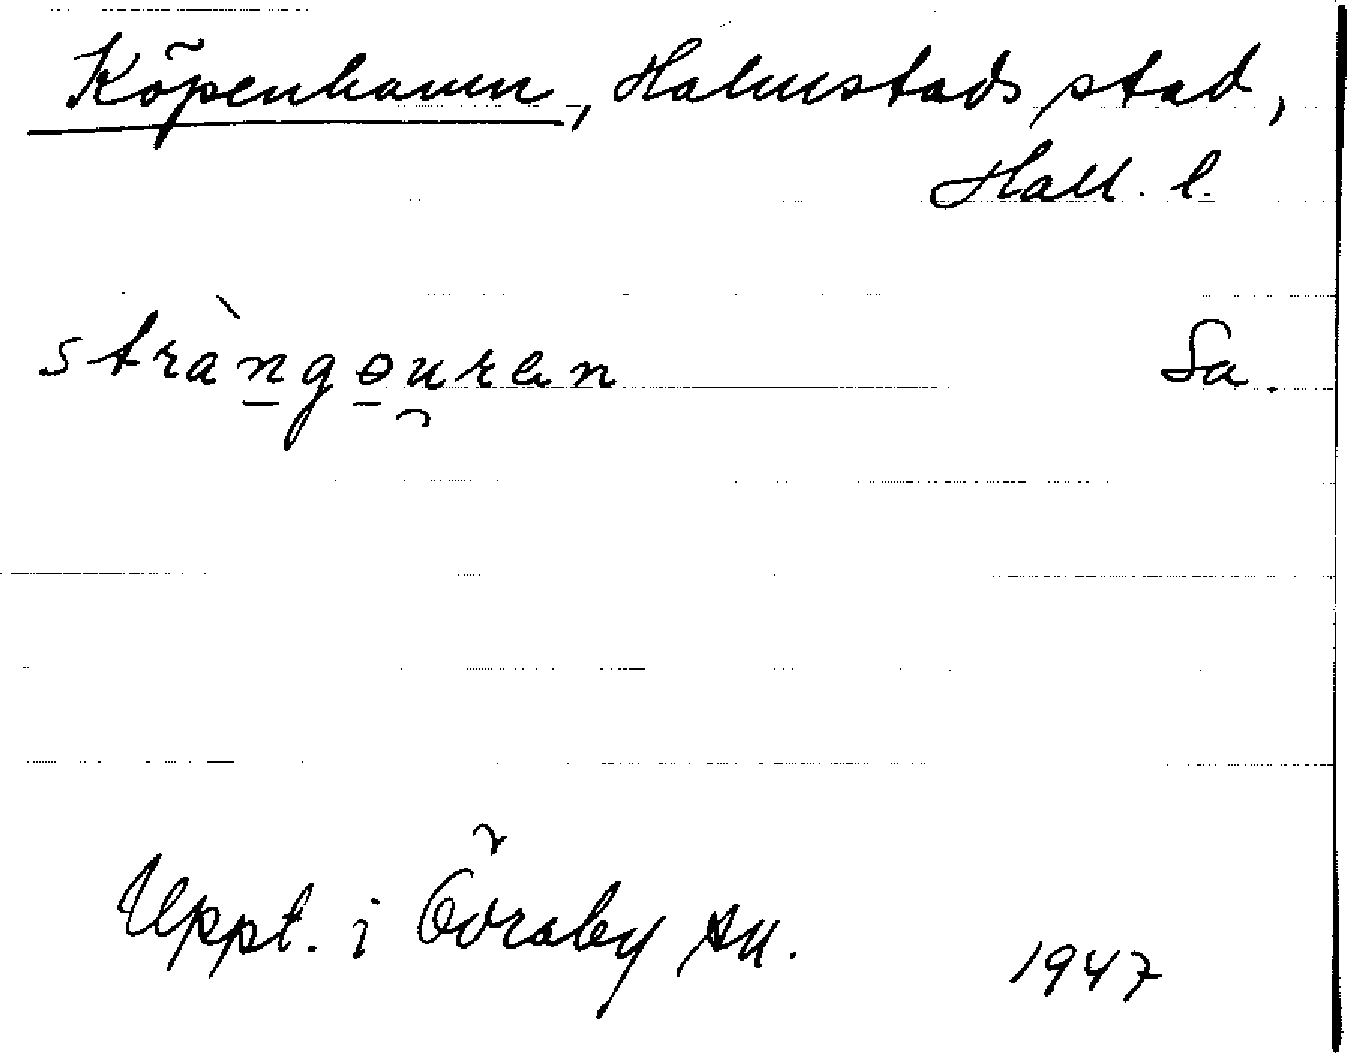 Köpenhamn, Halmstads stad,
Hall. l.
stràn̲gɵ̲u̯ran Sa.
Uppt. i Övraby sn. 1947